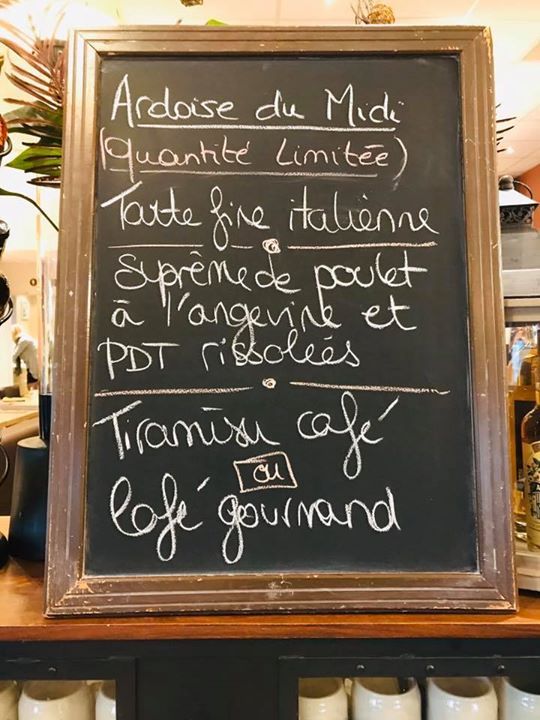 Ardoise du Midi
(Quantité Limitée)
Tarte fine italienne
Suprême de poulet
à l'angevine et
PDT rissolées
Tiramisu café
ou
Café gourmand